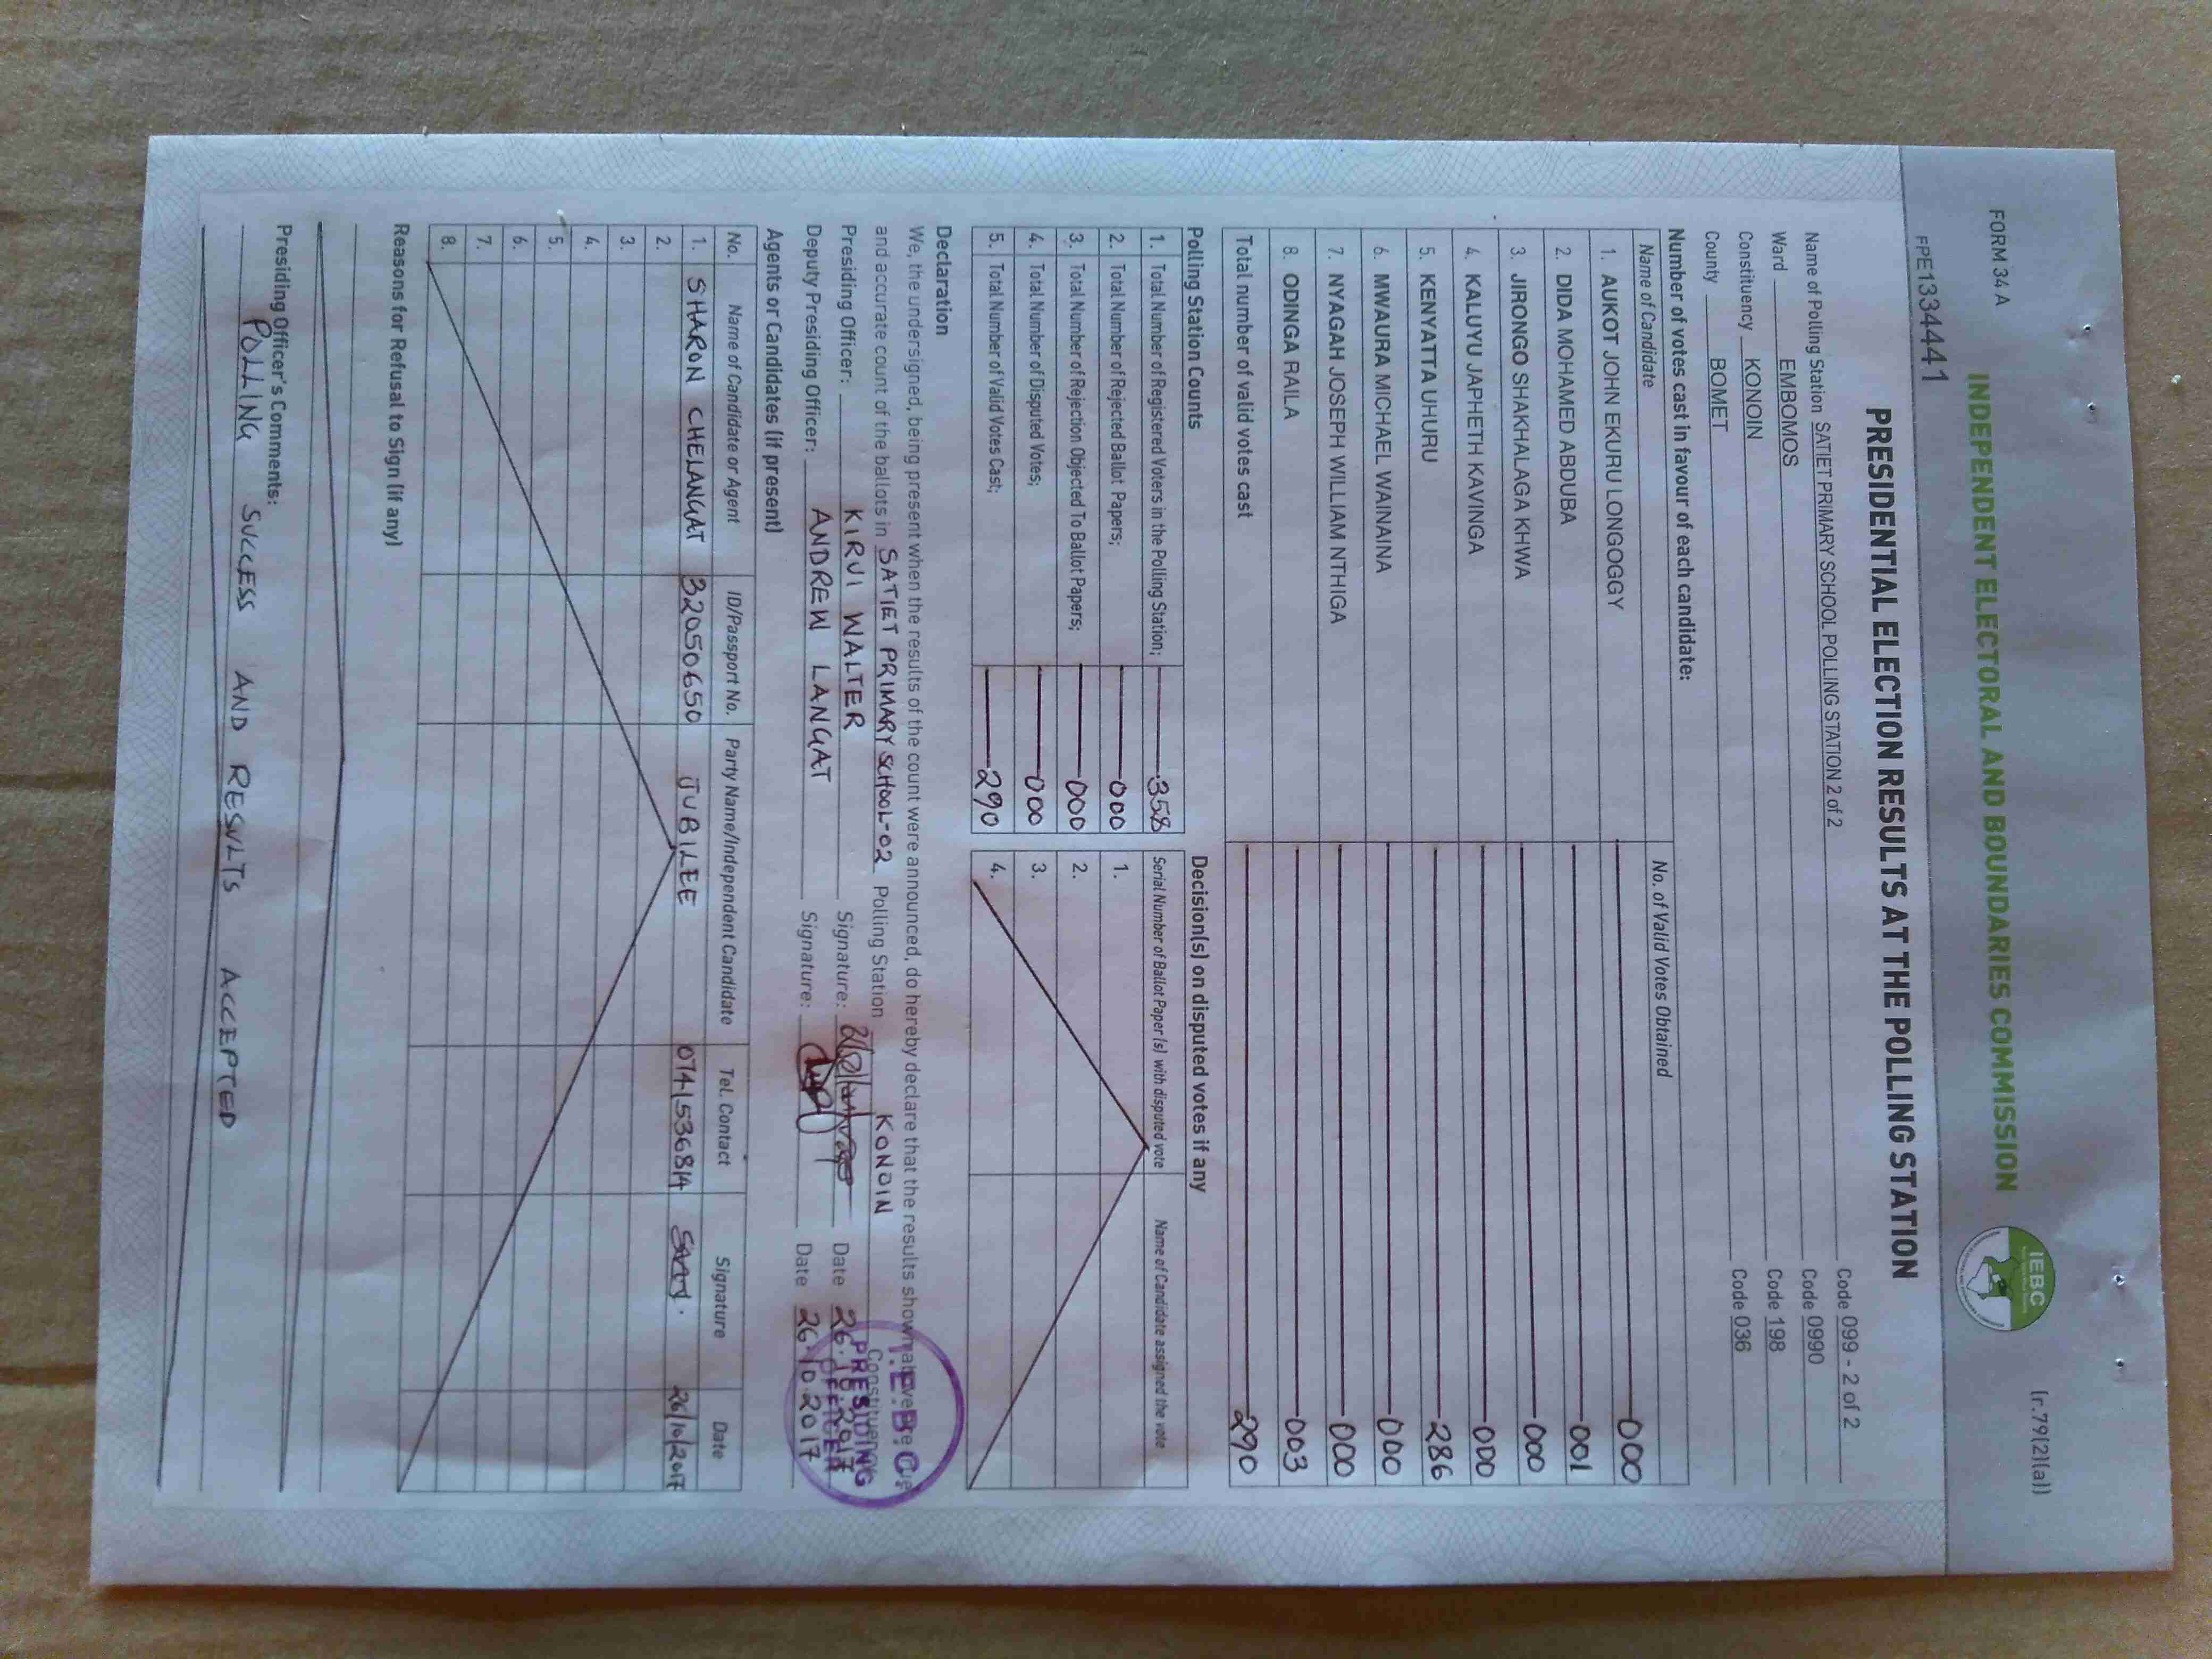 FORM 34 A
(r.79(2)(a))
INDEPENDENT ELECTORAL AND BOUNDARIES COMMISSION
IEBC
FPE133444 1
PRESIDENTIAL ELECTION RESULTS AT THE POLLING STATION
Name of Polling Station SATIET PRIMARY SCHOOL POLLING STATION 2 of 2 Code 099 - 2 of 2
Ward EMBOMOS Code 0990
Constituency KONOIN Code 198
County BOMET Code 036
Number of votes cast in favour of each candidate:
Name of Candidate No. of Valid Votes Obtained
1. AUKOT JOHN EKURU LONGOGGY 000
2. DIDA MOHAMED ABDUBA 001
3. JIRONGO SHAKHALAGA KHWA 000
4. KALUYU JAPHETH KAVINGA 000
5. KENYATTA UHURU 286
6. MWAURA MICHAEL WAINAINA 000
7. NYAGAH JOSEPH WILLIAM NTHIGA 000
8. ODINGA RAILA 003
Total number of valid votes cast 290
Polling Station Counts
1. Total Number of Registered Voters in the Polling Station; 358
2. Total Number of Rejected Ballot Papers; 000
3. Total Number of Rejection Objected To Ballot Papers; 000
4. Total Number of Disputed Votes; 000
5. Total Number of Valid Votes Cast; 290
Decision(s) on disputed votes if any
Serial Number of Ballot Paper (s) with disputed vote Name of Candidate assigned the vote
1.
2.
3.
4.
Declaration
We, the undersigned, being present when the results of the count were announced, do hereby declare that the results shown above are
and accurate count of the ballots in SATIET PRIMARY SCHOOL-02 Polling Station KONOIN Constituency
Presiding Officer: KIRUI WALTER Signature: Date 26.10.2017
Deputy Presiding Officer: ANDREW LANGAT Signature: Date 26.10.2017
I.E.B.C
PRESIDING
OFFICER
Agents or Candidates (if present)
No. Name of Candidate or Agent ID/Passport No. Party Name/Independent Candidate Tel. Contact Signature Date
1. SHARON CHELANGAT 32050650 JUBILEE 0741536814 26/10/2017
2.
3.
4.
5.
6.
7.
8.
Reasons for Refusal to Sign (if any)
Presiding Officer's Comments:
POLLING SUCCESS AND RESULTS ACCEPTED